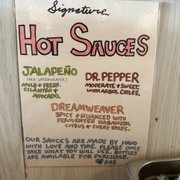 Signature
HOT SAUCES
JALAPEÑO
(AKA GREENWEAVER)
MILD + FRESH.
CILANTRO +
AVOCADO.
DR. PEPPER
MODERATE + SWEET
WITH ARBOL CHILES.
DREAMWEAVER
SPICY + NUANCED WITH
FERMENTED HABANERO,
CITRUS + CURRY SPICES.
OUR SAUCES ARE MADE BY HAND
WITH LOVE AND TIME. PLEASE ONLY
TAKE WHAT YOU WILL USE. BOTTLES
ARE AVAILABLE FOR PURCHASE.